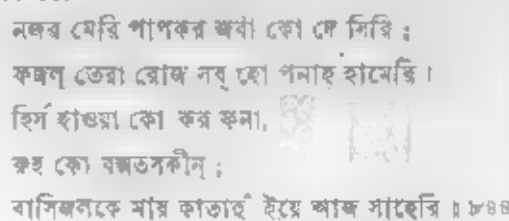 নজর মেরি পাপকর জবাঁ কো দে সিরি ;
ফজল্ তেরা রোজ সব্ হো পনাহ হামেরি ।
হির্স হাওয়া কো কর ফনা,
রুহ কো বক্সতসকীন্ ;
বাসিজনকে মায় কাতাহুঁ ইয়ে আজ সাহেরি ॥ ৮৪৪